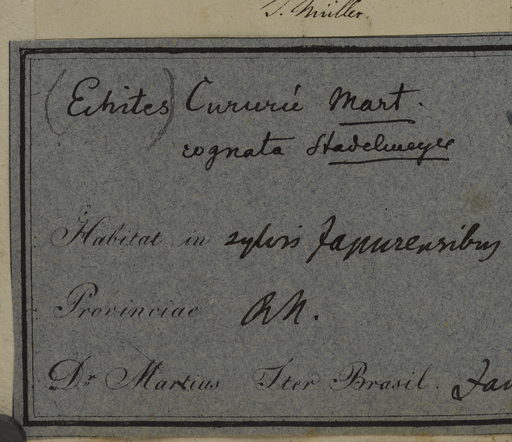 J. Müller.
(Echites) Cururú Mart.
cognata Stadelmeyer
Habitat in sylvis Japurensibus
Provinciae RN.
Dr Martius Iter Brasil. Jan